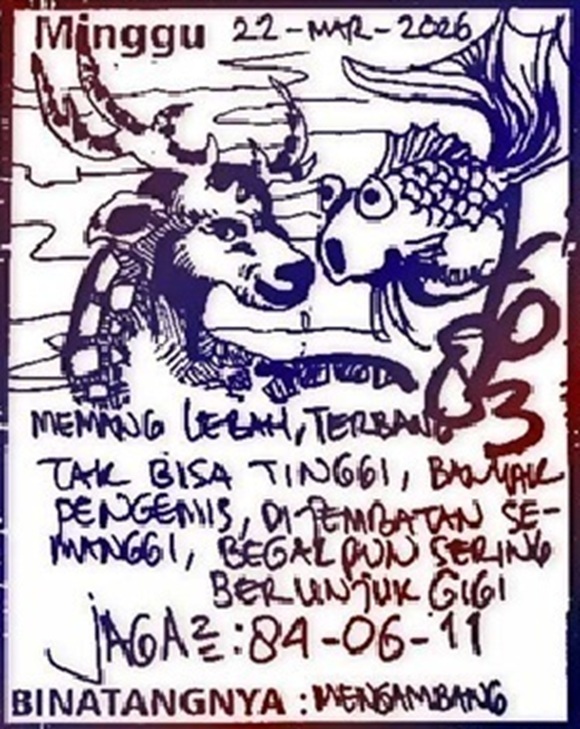 Minggu 22-MAR-2026
6
83
MEMANG LEBAH, TERBANG
TAK BISA TINGGI, BANYAK
PENGEMIS, DIJEMBATAN SE-
MANGGI, BEGALPUN SERING
BERUNJUK GIGI
JAGA2=:84-06-11
BINATANGNYA : MENGAMBANG